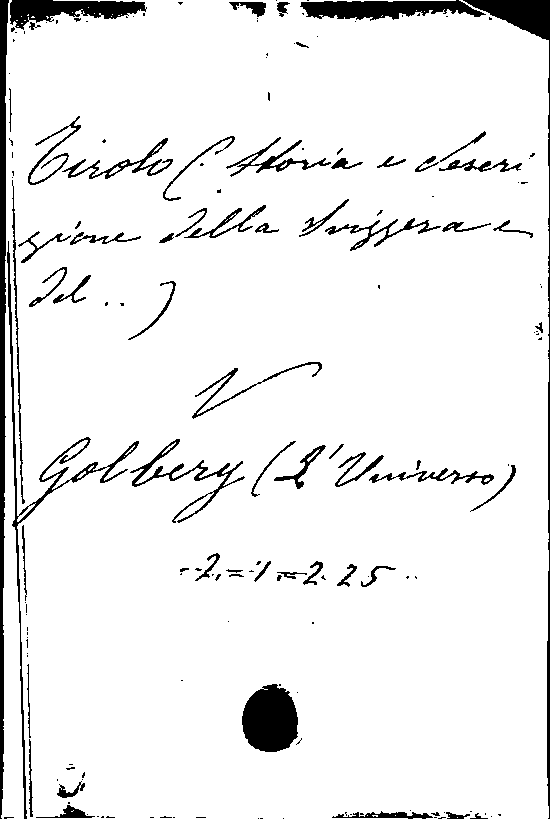 Tirolo (. Storia e descri-
zione della Svizzera e
del .. )
V
Golbery (L'Universo)
--2.=1.=2.25..